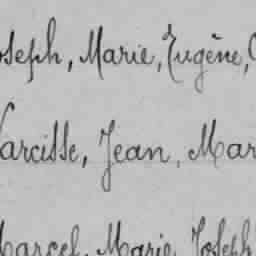 Joseph, Marie, Eugène,
Narcisse, Jean, Mar
Marcel, Marie Joseph